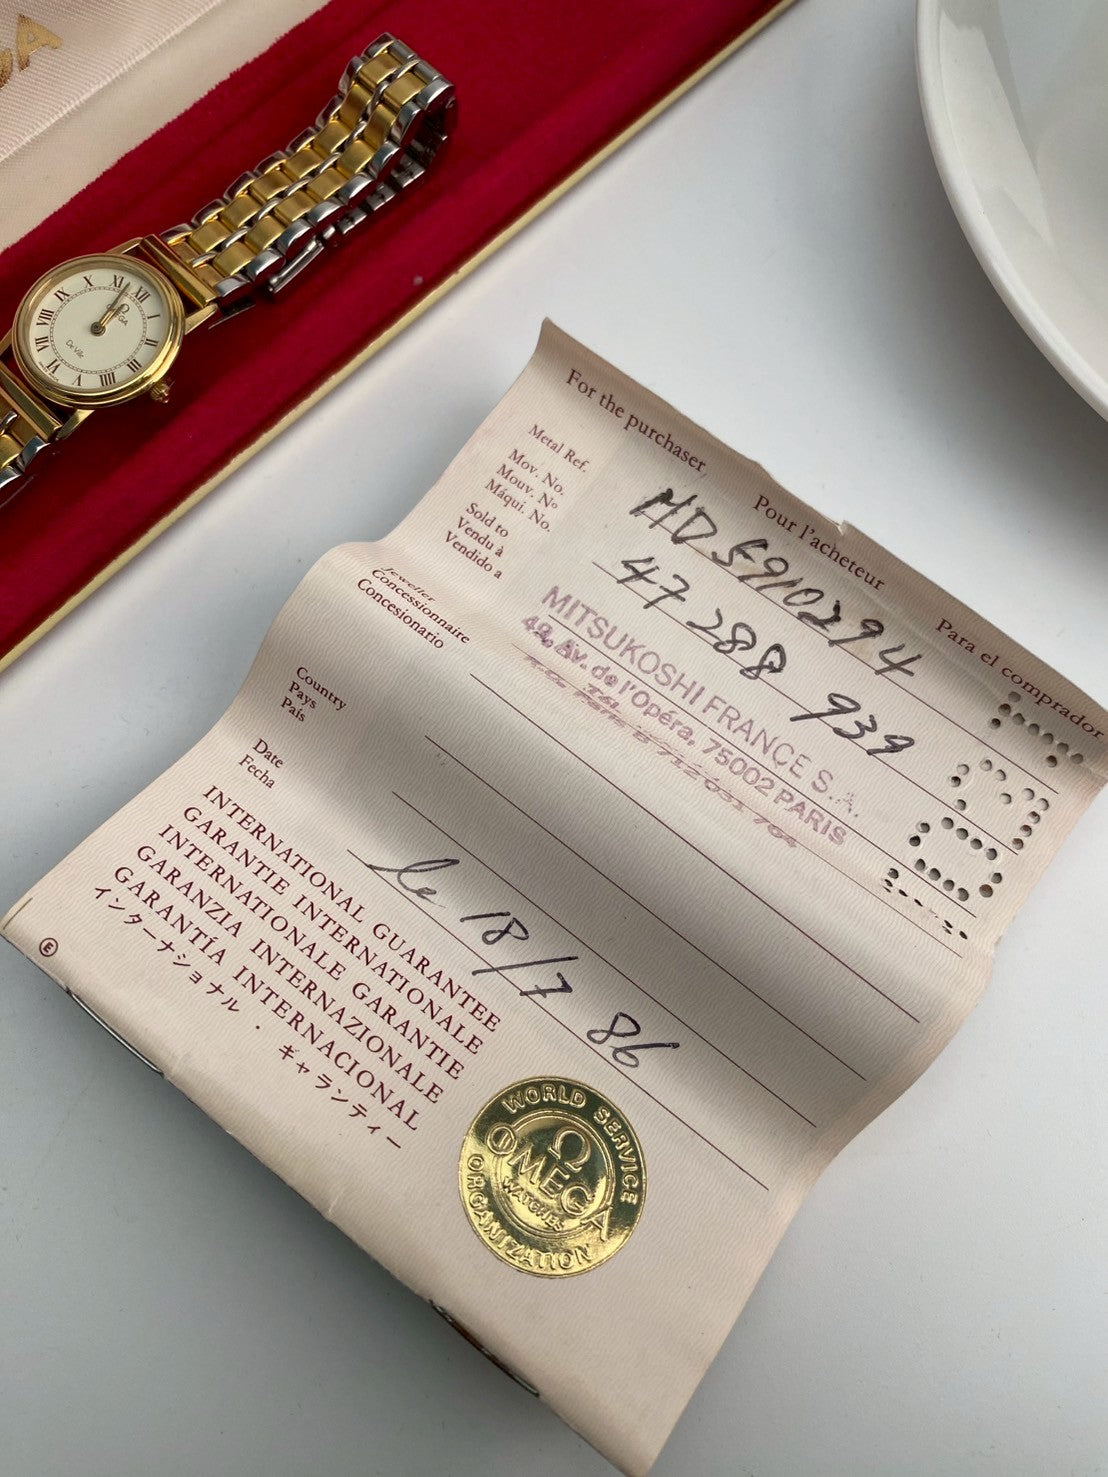 XII
I
II
III
IIII
V
VI
VII
VIII
IX
X
XI
Ω
OMEGA
De Ville
For the purchaser,
Pour l'acheteur
Para el comprador
Metal Ref.
MD 5910294
Mov. No.
Mouv. Nº
Máqui. No.
47 288 939
Sold to
Vendu à
Vendido a
MITSUKOSHI FRANCE S.A.
Av. de l'Opéra, 75002 PARIS
Jeweller
Concessionnaire
Concesionario
Country
Pays
País
Date
Fecha
le 18/7 86
INTERNATIONAL GUARANTEE
GARANTIE INTERNATIONALE
INTERNATIONALE GARANTIE
GARANZIA INTERNAZIONALE
GARANTÍA INTERNACIONAL
インターナショナル・ギャランティー
E
WORLD SERVICE
Ω
OMEGA
WATCHES
ORGANIZATION